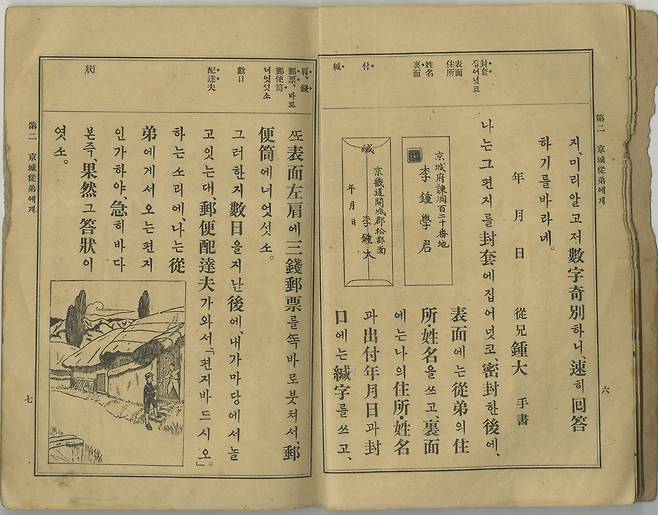 第二 京城從弟에게
六
封套
집어넛코
表面
住所
姓名
裏面
付
緘
지、미리알고저數字奇別하니、速히回答
하기를바라네。
年 月 日 從兄 鍾大 手書
나는그편지를封套에집어넛코、密封한後에、
表面에는從弟의住
所·姓名을쓰고、裏面
에는나의住所·姓名
과出付年月日과封
口에는緘字를쓰고、
京城府諫洞百二十番地
李鍾學君
緘
京畿道開城郡松都面
李鍾大
年 月 日
肩、錢
郵票、바로
郵便筒
너엇소
數日
配達夫
狀
ᄯᅩ表面左肩에三錢郵票를ᄯᅩᆨ바로붓처서、郵
便筒에너엇섯소。
그러한지數日을지난後에、내가마당에서놀
고잇는대、郵便配達夫가와서「편지바드시오。」
하는소리에、나는從
弟에게서오는편지
인가하야、急히바다
본즉、果然그答狀이
엿소。
第二 京城從弟에게
七